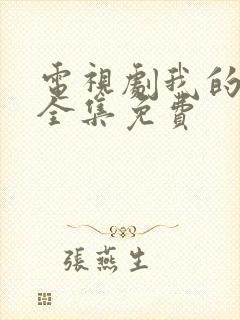 電視劇我的
全集免費
張燕生